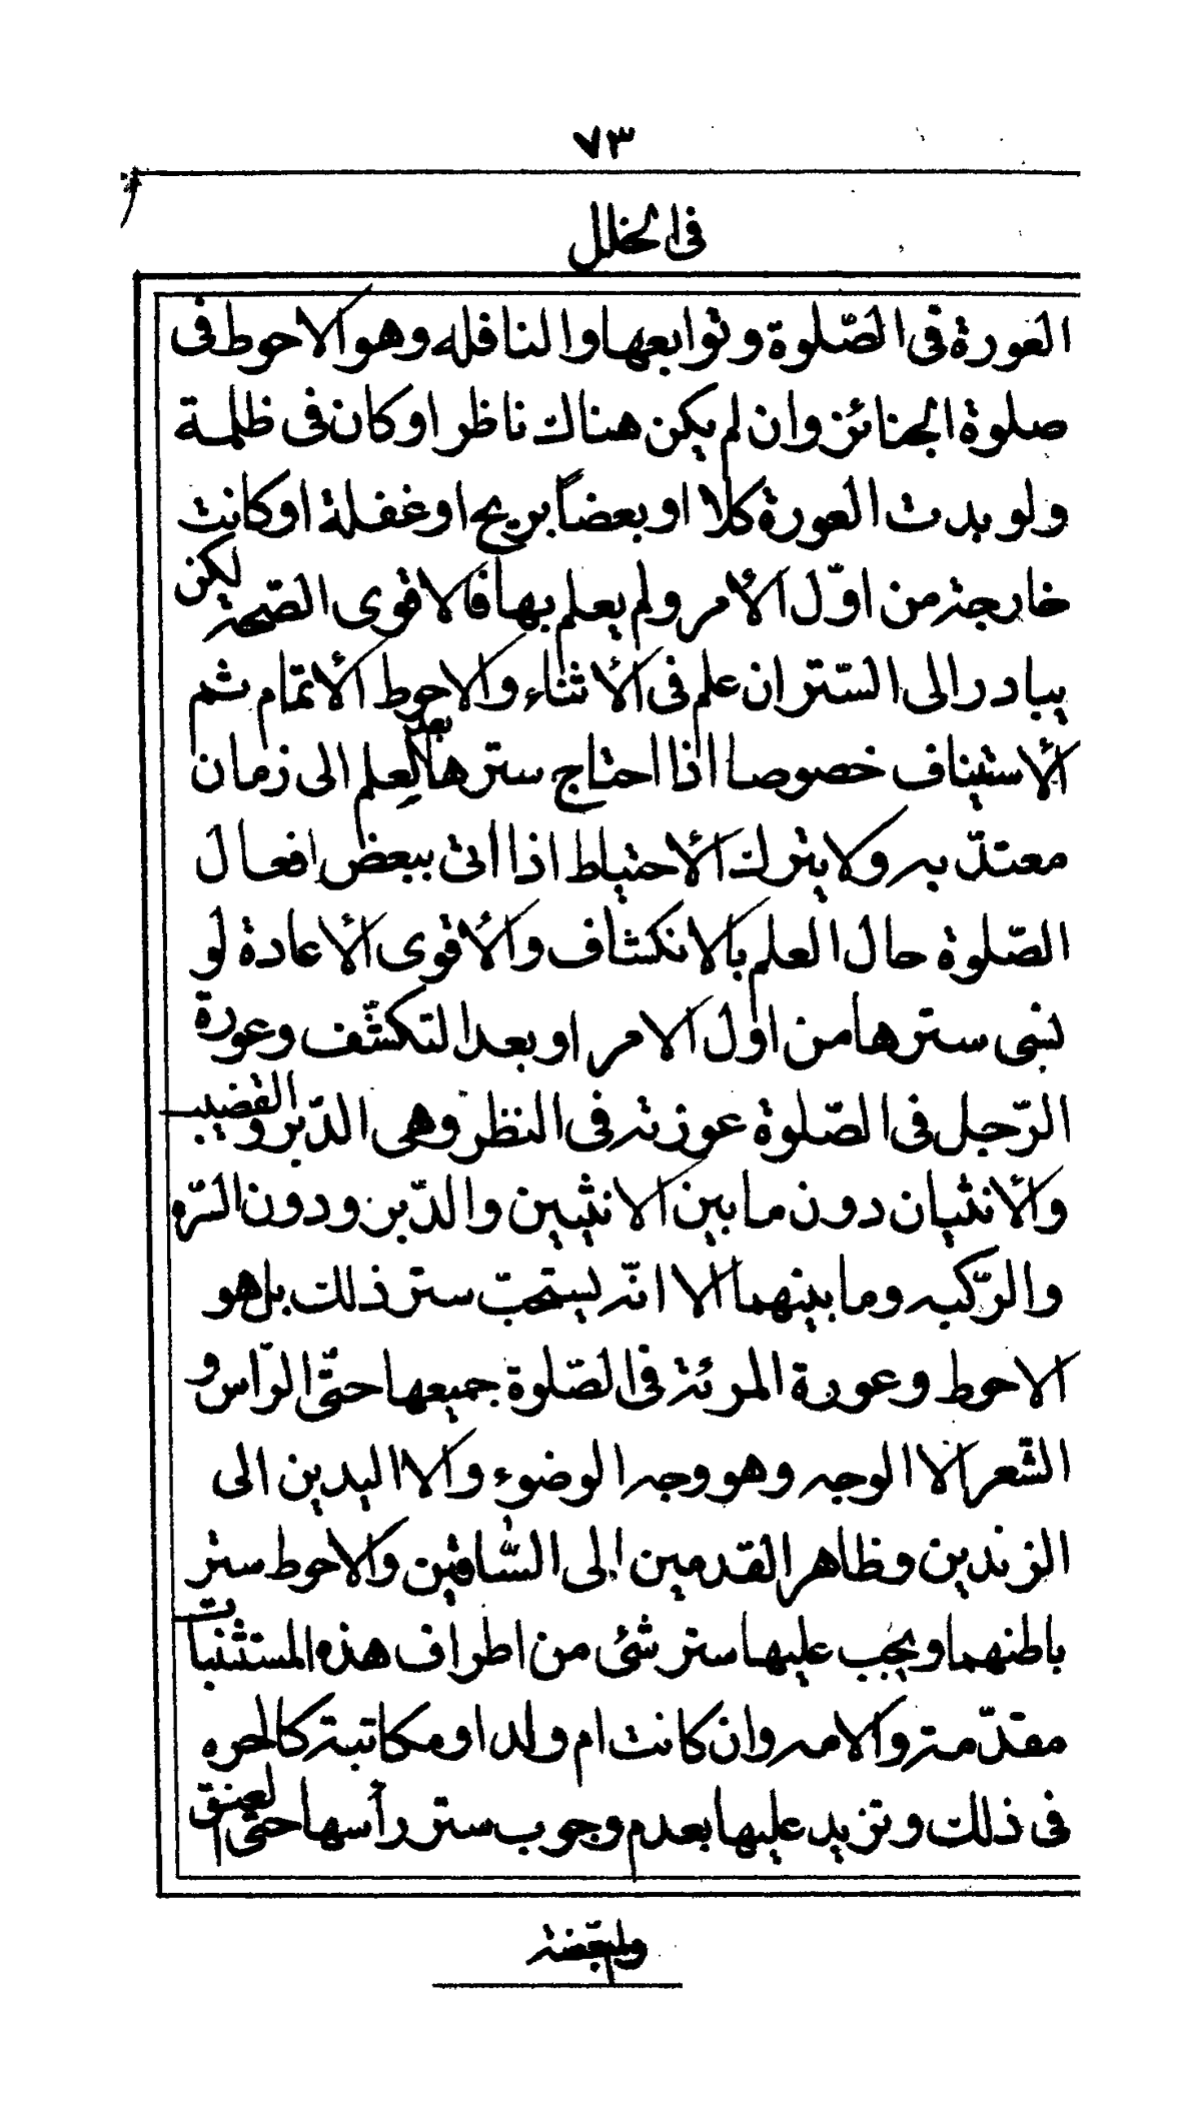 ٧٣
فى الخلل
العورة فى الصّلوة وتوابعها والنافله وهو الاحوط فى
صلوة الجنائز وان لم يكن هناك ناظر او كان فى ظلمة
ولو بدت العورة كلا او بعضاً بريح او غفلة او كانت
خارجة من اوّل الأمر ولم يعلم بها فالاقوى الصّحة لكن
يبادر الى السّتر ان علم فى الأثناء والاحوط الأتمام ثم
الأستيناف خصوصا اذا احتاج سترها بعد العلم الى زمان
معتدّ به ولا يترك الأحتياط اذا اتى ببعض افعال
الصّلوة حال العلم بالانكشاف والأقوى الأعادة لو
نسى سترها من اول الامر او بعد التكشّف وعورة
الرّجل فى الصّلوة عورته فى النظر وهى الدّبر والقضيب
والأنثيان دون ما بين الانثيين والدّبر ودون السّره
والرّكبه وما بينهما الا انّه يستحبّ ستر ذلك بل هو
الاحوط وعورة المرئة فى الصّلوة جميعها حتّى الرّاس و
الشّعر الا الوجه وهو وجه الوضوء والا اليدين الى
الزندين وظاهر القدمين الى السّاقين والاحوط ستر
باطنهما ويجب عليها ستر شئ من اطراف هذه المستثنيات
مقدّمة والامه وان كانت ام ولد او مكاتبة كالحره
فى ذلك وتزيد عليها بعدم وجوب ستر رأسها حتى العنق